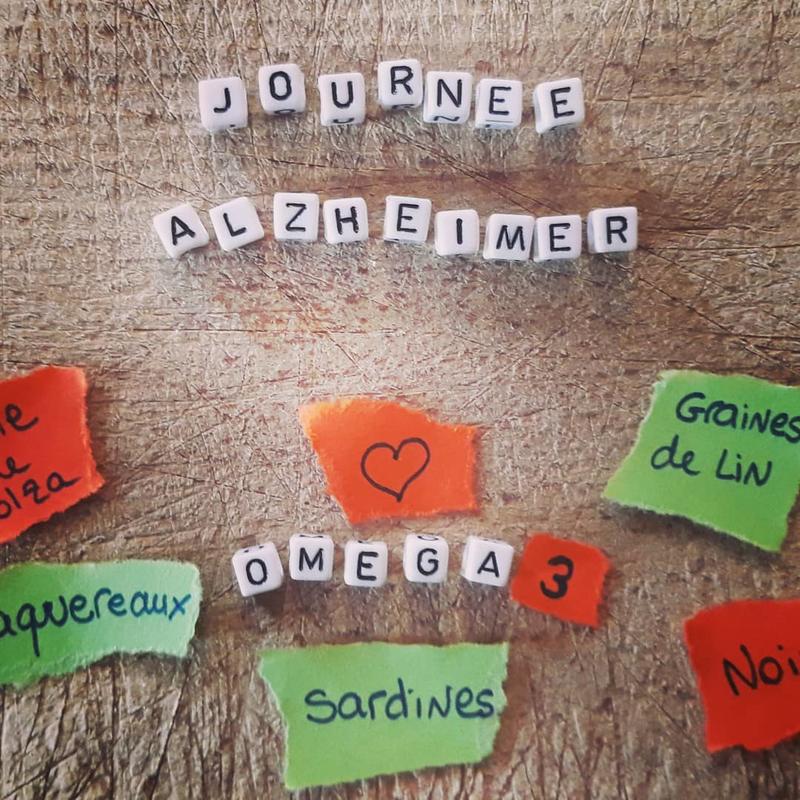 JOURNEE
ALZHEIMER
Graines
de LiN
OMEGA 3
aquereaux
SardiNes